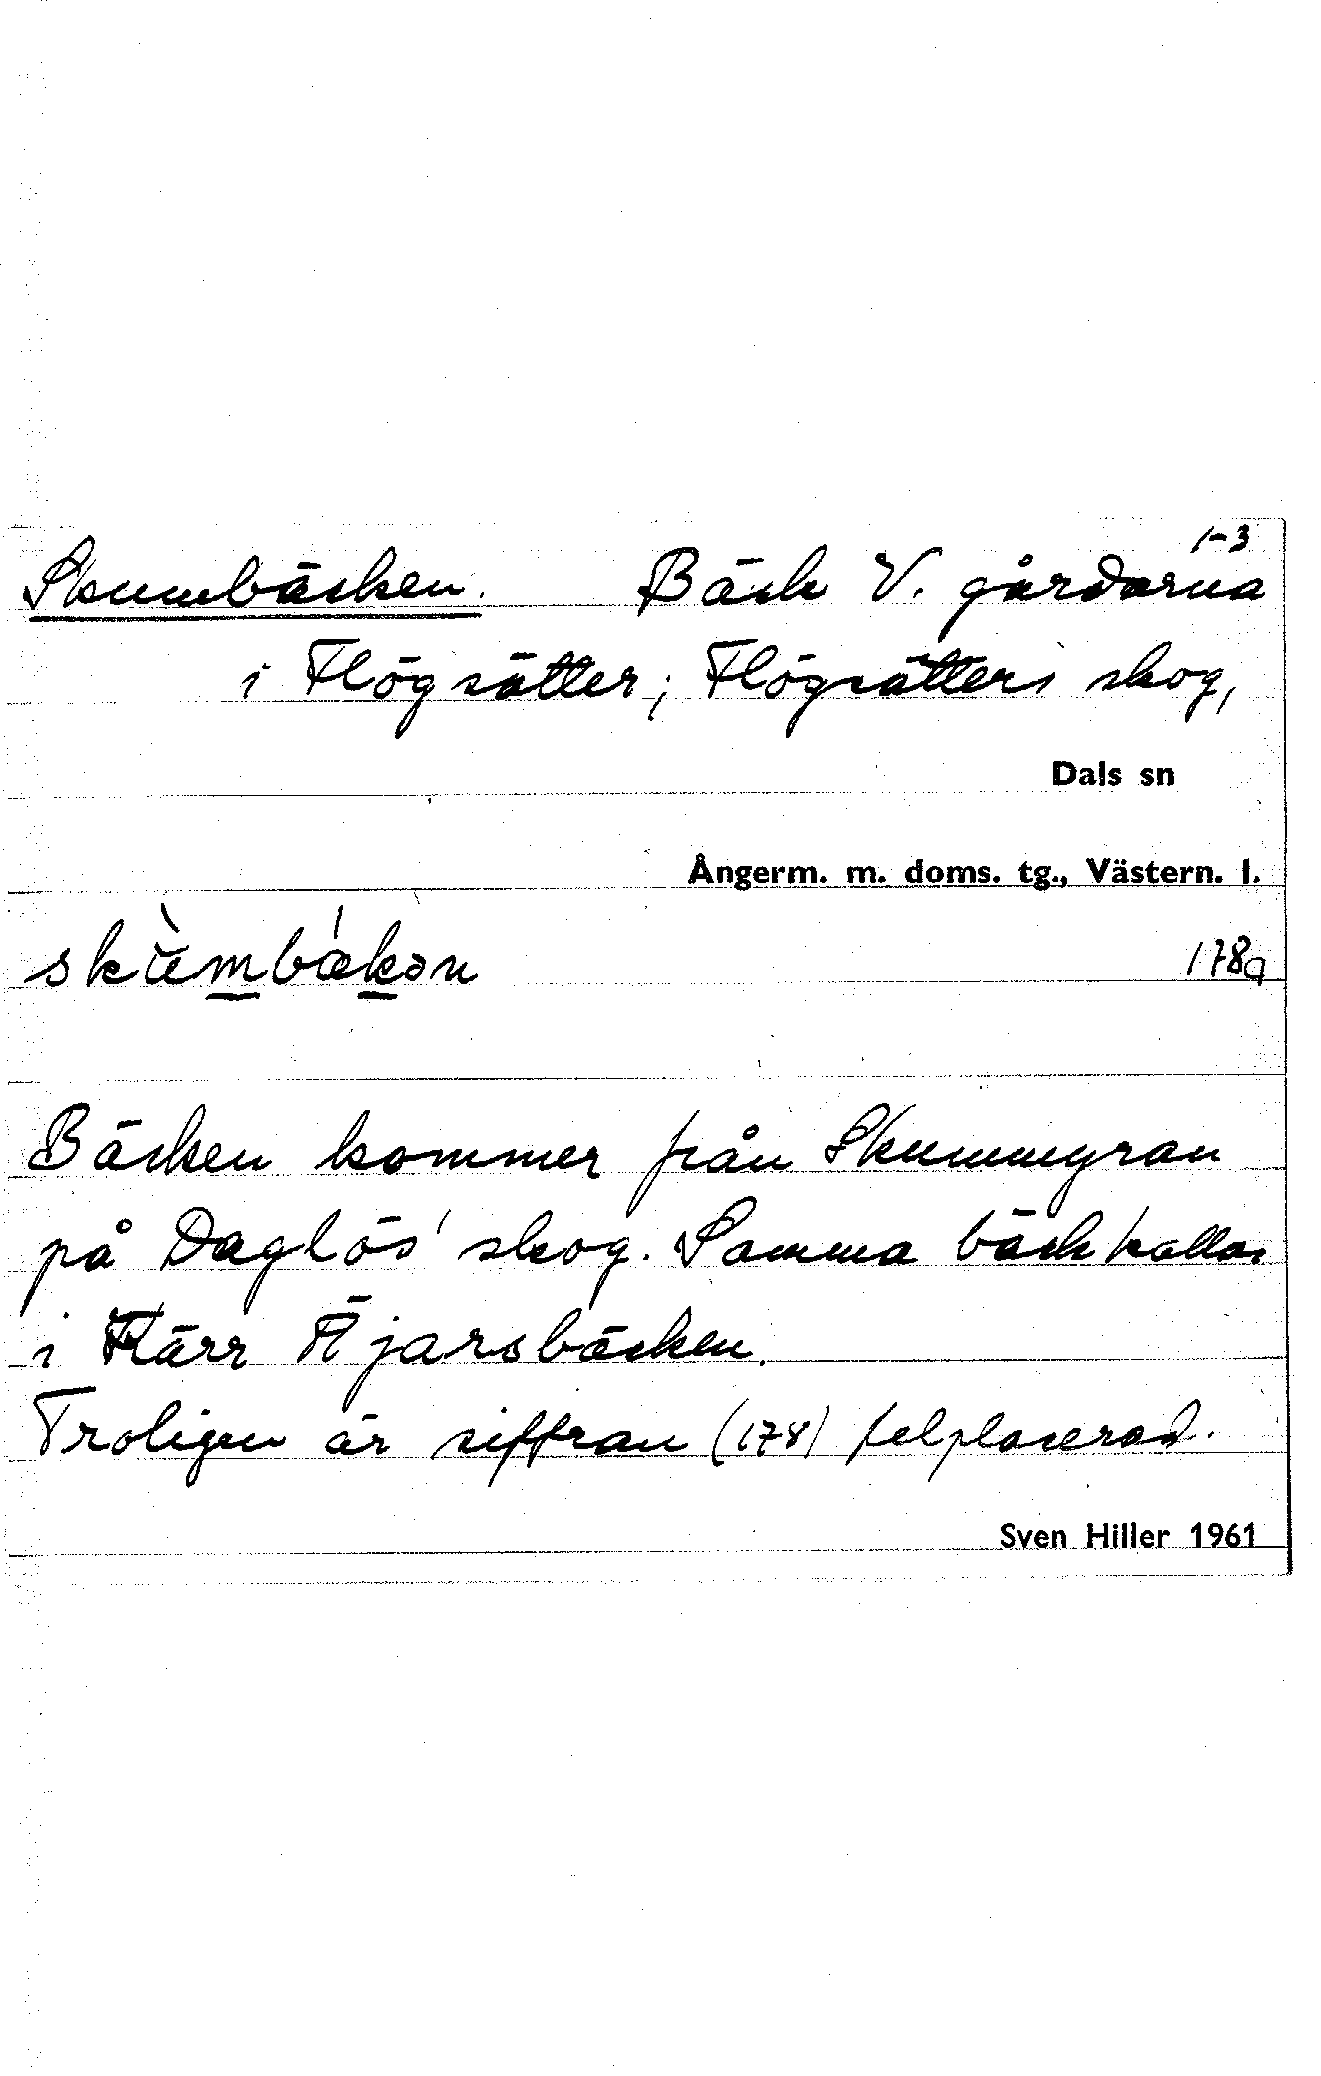 1-3
Skumbäcken. Bäck V. gårdarna
i Flögsätter; Flögsätters skog,
Dals sn
Ångerm. m. doms. tg., Västern. l.
178a
Bäcken kommer från Skummyran
på Daglös' skog. Samma bäck kallas
i Kärr Äjarsbäcken.
Troligen är siffran (178) felplacerad.
Sven Hiller 1961